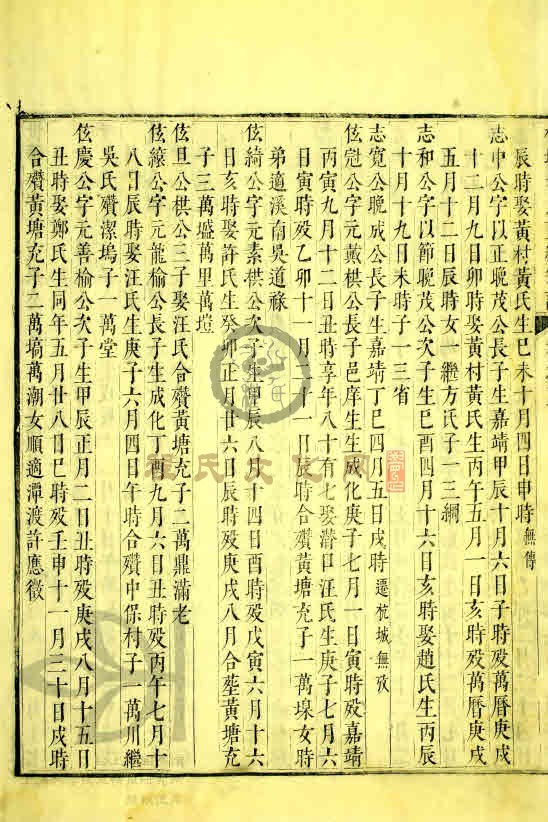 辰時娶黃村黃氏生巳未十月四日申時無傳
志中公字以正晚茂公長子生嘉靖甲辰十月六日子時殁萬曆庚戌
十二月九日卯時娶黃村黃氏生丙午五月一日亥時殁萬曆庚戌
五月十二日辰時女一繼方氏子一三綱
志和公字以節晚茂公次子生巳酉四月十六日亥時娶趙氏生丙辰
十月十九日未時子一三省
志寬公晚成公長子生嘉靖丁巳四月五日戌時遷杭城無攷
伭尅公字元戴棋公長子邑庠生生成化庚子七月一日寅時殁嘉靖
丙寅九月十二日丑時享年八十有七娶潛口汪氏生庚子七月六
日寅時殁乙卯十一月十一日辰時合殯黃塘充子一萬堢女時
弟適溪南吳道祿
伭綺公字元素棋公次子生甲辰八月十四日酉時殁戊寅六月十六
日亥時娶許氏生癸卯正月廿六日辰時殁庚戌八月合塟黃塘充
子三萬墭萬里萬塏
伭旦公棋公三子娶汪氏合殯黃塘充子二萬鼎滿老
伭纕公字元龍榆公長子生成化丁酉九月六日丑時殁丙午七月十
八日辰時娶汪氏生庚子六月四日午時合殯中保村子一萬川繼
吳氏殯潔塢子一萬堂
伭慶公字元善榆公次子生甲辰正月二日丑時殁庚戌八月十五日
丑時娶鄭氏生同年五月廿八日巳時殁壬申十一月三十日戌時
合殯黃塘充子二萬塙萬潮女順適潭渡許應徵